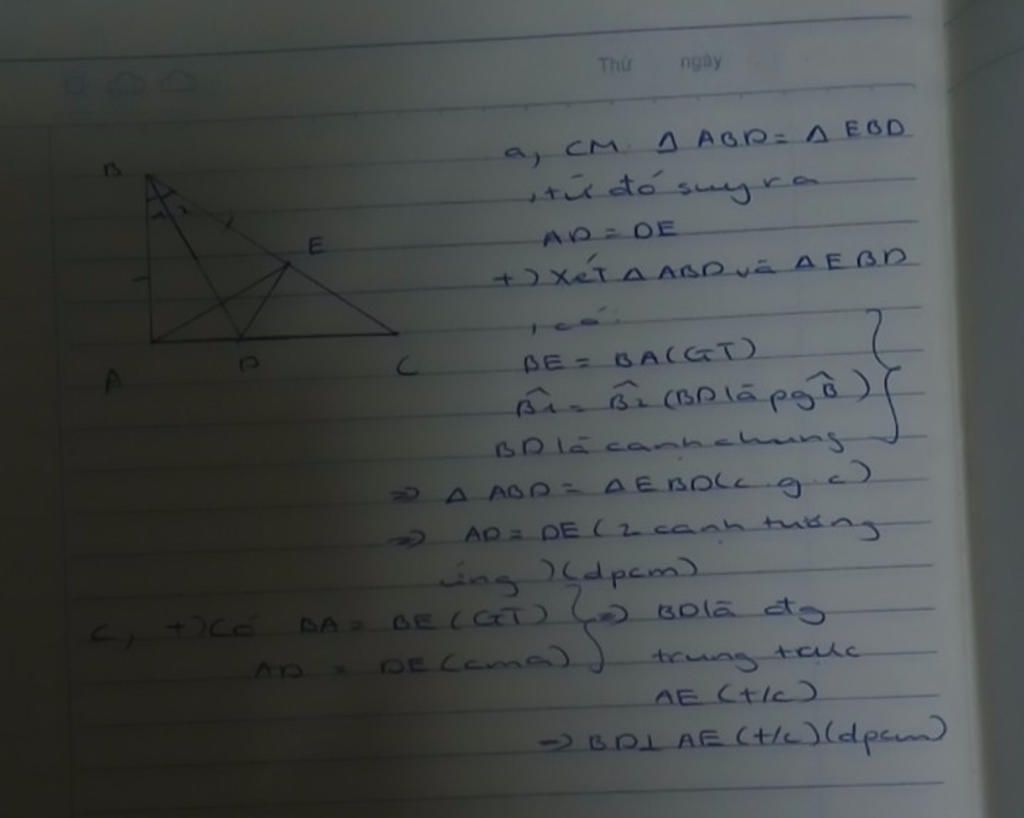 Thứ ngày
a, CM. Δ ABD = Δ EBD
, từ đó suy ra
AD = DE
+) Xét Δ ABD và Δ EBD
, có:
BE = BA (GT)
B̂1 = B̂2 (BD là pg B̂)
BD là cạnh chung
=> Δ ABD = Δ EBD (c. g. c)
=> AD = DE (2 cạnh tương
ứng) (dpcm)
c, +) Có BA = BE (GT) => BD là đtg
AD = DE (cma) trung trực
AE (t/c)
=> BD ⊥ AE (t/c) (dpcm)
B
1 2
E
A D C